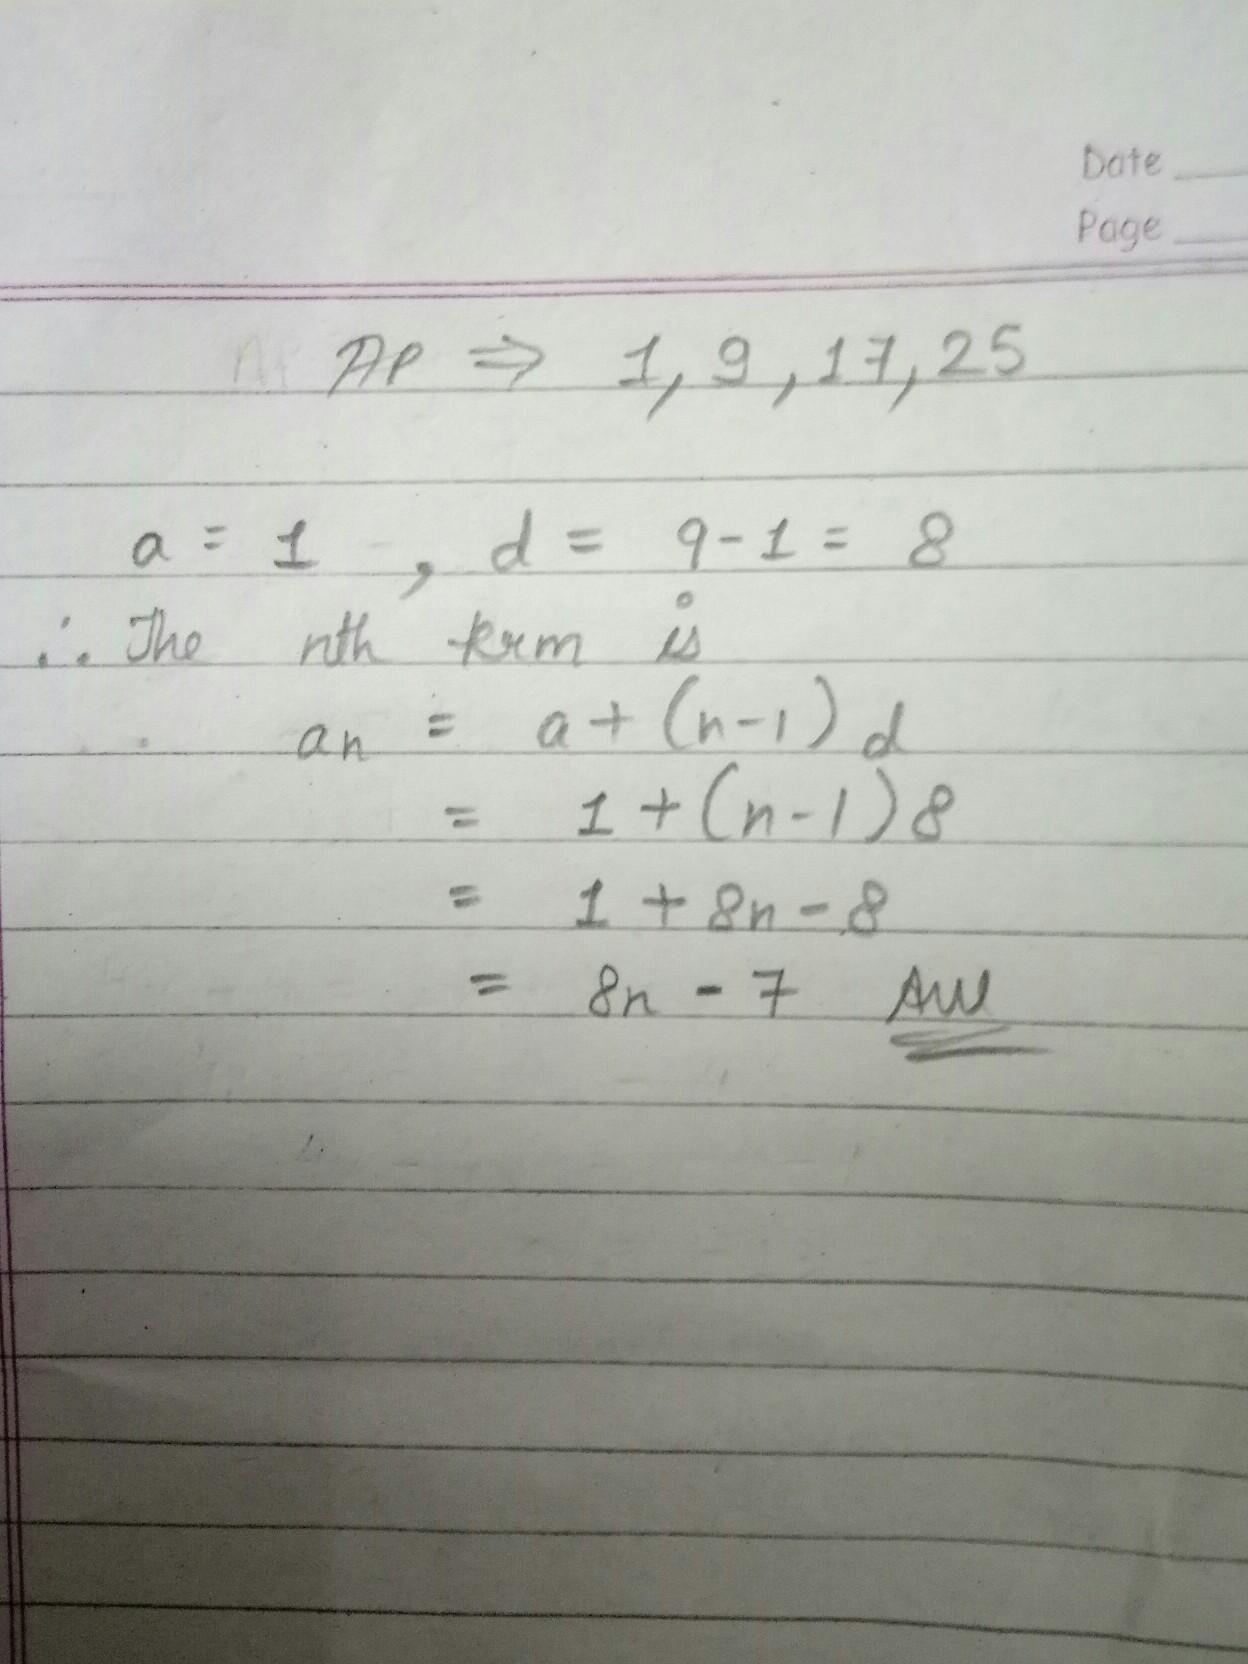 Date
Page
AP ⇒ 1, 9, 17, 25
a = 1 , d = 9-1 = 8
∴ The nth term is
an = a + (n-1) d
= 1 + (n-1) 8
= 1 + 8n - 8
= 8n - 7